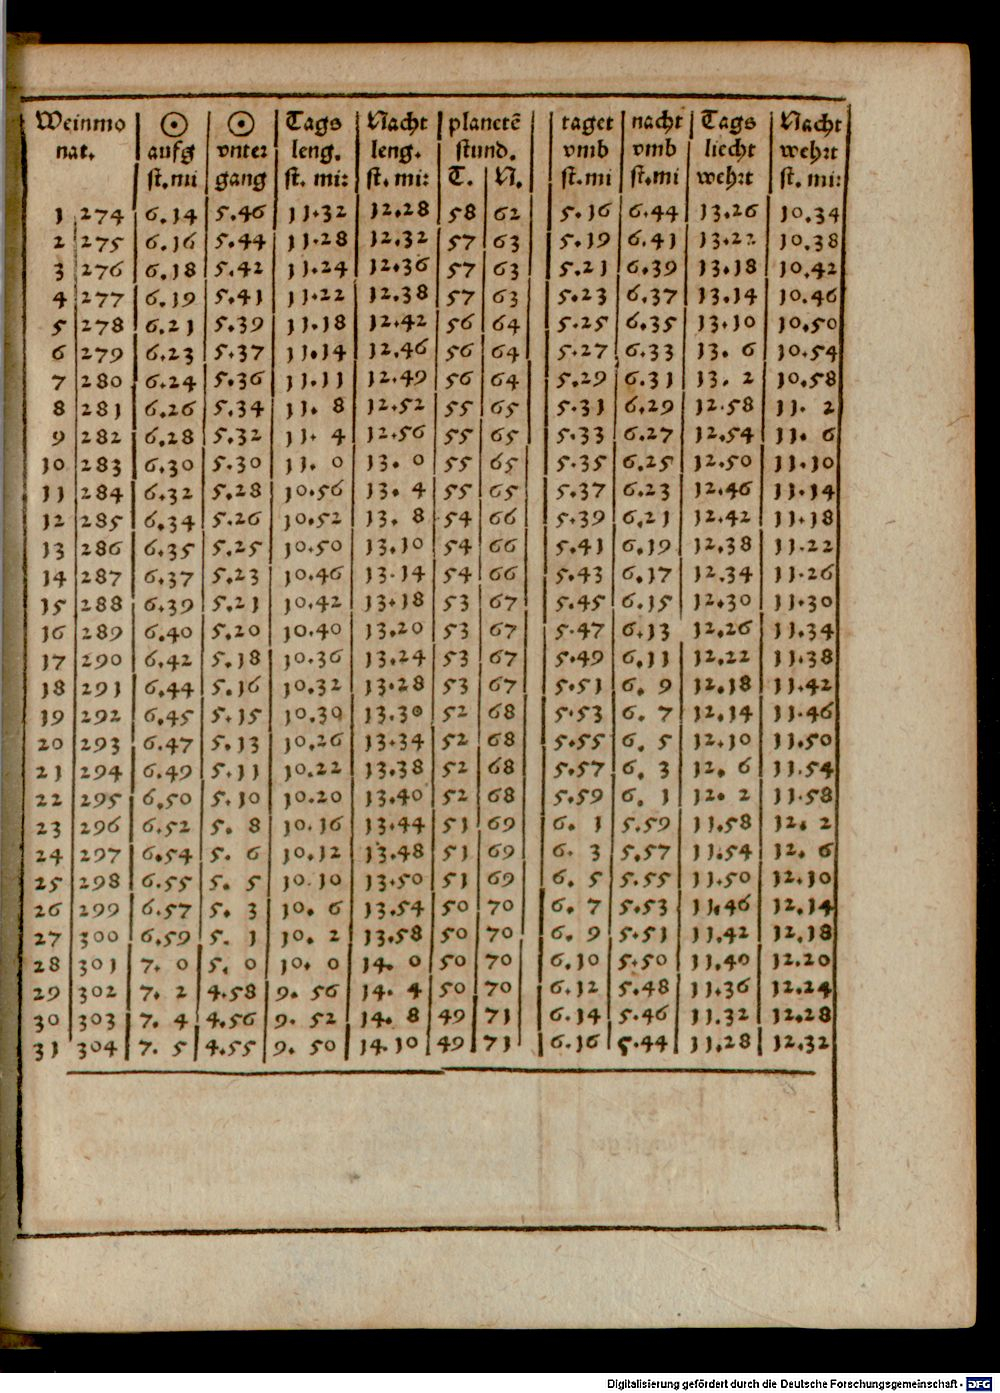 Weinmo ☉ ☉ Tags Nacht planctē taget nacht Tags Nacht
nat. aufg vnter leng. leng. stund. vmb vmb liecht wehrt
st.mi gang st. mi: st. mi: T. N. st.mi st.mi wehrt st. mi:
1 274 6.14 5.46 11.32 12.28 58 62 5.16 6.44 13.26 10.34
2 275 6.16 5.44 11.28 12.32 57 63 5.19 6.41 13.22 10.38
3 276 6.18 5.42 11.24 12.36 57 63 5.21 6.39 13.18 10.42
4 277 6.19 5.41 11.22 12.38 57 63 5.23 6.37 13.14 10.46
5 278 6.21 5.39 11.18 12.42 56 64 5.25 6.35 13.10 10.50
6 279 6.23 5.37 11.14 12.46 56 64 5.27 6.33 13. 6 10.54
7 280 6.24 5.36 11.11 12.49 56 64 5.29 6.31 13. 2 10.58
8 281 6.26 5.34 11. 8 12.52 55 65 5.31 6.29 12.58 11. 2
9 282 6.28 5.32 11. 4 12.56 55 65 5.33 6.27 12.54 11. 6
10 283 6.30 5.30 11. 0 13. 0 55 65 5.35 6.25 12.50 11.10
11 284 6.32 5.28 10.56 13. 4 55 65 5.37 6.23 12.46 11.14
12 285 6.34 5.26 10.52 13. 8 54 66 5.39 6.21 12.42 11.18
13 286 6.35 5.25 10.50 13.10 54 66 5.41 6.19 12.38 11.22
14 287 6.37 5.23 10.46 13.14 54 66 5.43 6.17 12.34 11.26
15 288 6.39 5.21 10.42 13.18 53 67 5.45 6.15 12.30 11.30
16 289 6.40 5.20 10.40 13.20 53 67 5.47 6.13 12.26 11.34
17 290 6.42 5.18 10.36 13.24 53 67 5.49 6.11 12.22 11.38
18 291 6.44 5.16 10.32 13.28 53 67 5.51 6. 9 12.18 11.42
19 292 6.45 5.15 10.30 13.30 52 68 5.53 6. 7 12.14 11.46
20 293 6.47 5.13 10.26 13.34 52 68 5.55 6. 5 12.10 11.50
21 294 6.49 5.11 10.22 13.38 52 68 5.57 6. 3 12. 6 11.54
22 295 6.50 5.10 10.20 13.40 52 68 5.59 6. 1 12. 2 11.58
23 296 6.52 5. 8 10.16 13.44 51 69 6. 1 5.59 11.58 12. 2
24 297 6.54 5. 6 10.12 13.48 51 69 6. 3 5.57 11.54 12. 6
25 298 6.55 5. 5 10.10 13.50 51 69 6. 5 5.55 11.50 12.10
26 299 6.57 5. 3 10. 6 13.54 50 70 6. 7 5.53 11.46 12.14
27 300 6.59 5. 1 10. 2 13.58 50 70 6. 9 5.51 11.42 12.18
28 301 7. 0 5. 0 10. 0 14. 0 50 70 6.10 5.50 11.40 12.20
29 302 7. 2 4.58 9. 56 14. 4 50 70 6.12 5.48 11.36 12.24
30 303 7. 4 4.56 9. 52 14. 8 49 71 6.14 5.46 11.32 12.28
31 304 7. 5 4.55 9. 50 14.10 49 71 6.16 5.44 11.28 12.32
Digitalisierung gefördert durch die Deutsche Forschungsgemeinschaft - DFG